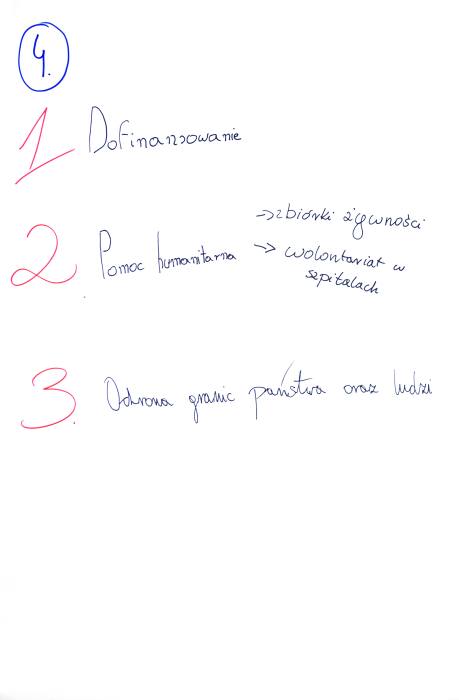 4.
1 Dofinansowanie
2. Pomoc humanitarna
→ zbiórki żywności
→ wolontariat w
szpitalach
3. Ochrona granic państwa oraz ludzi